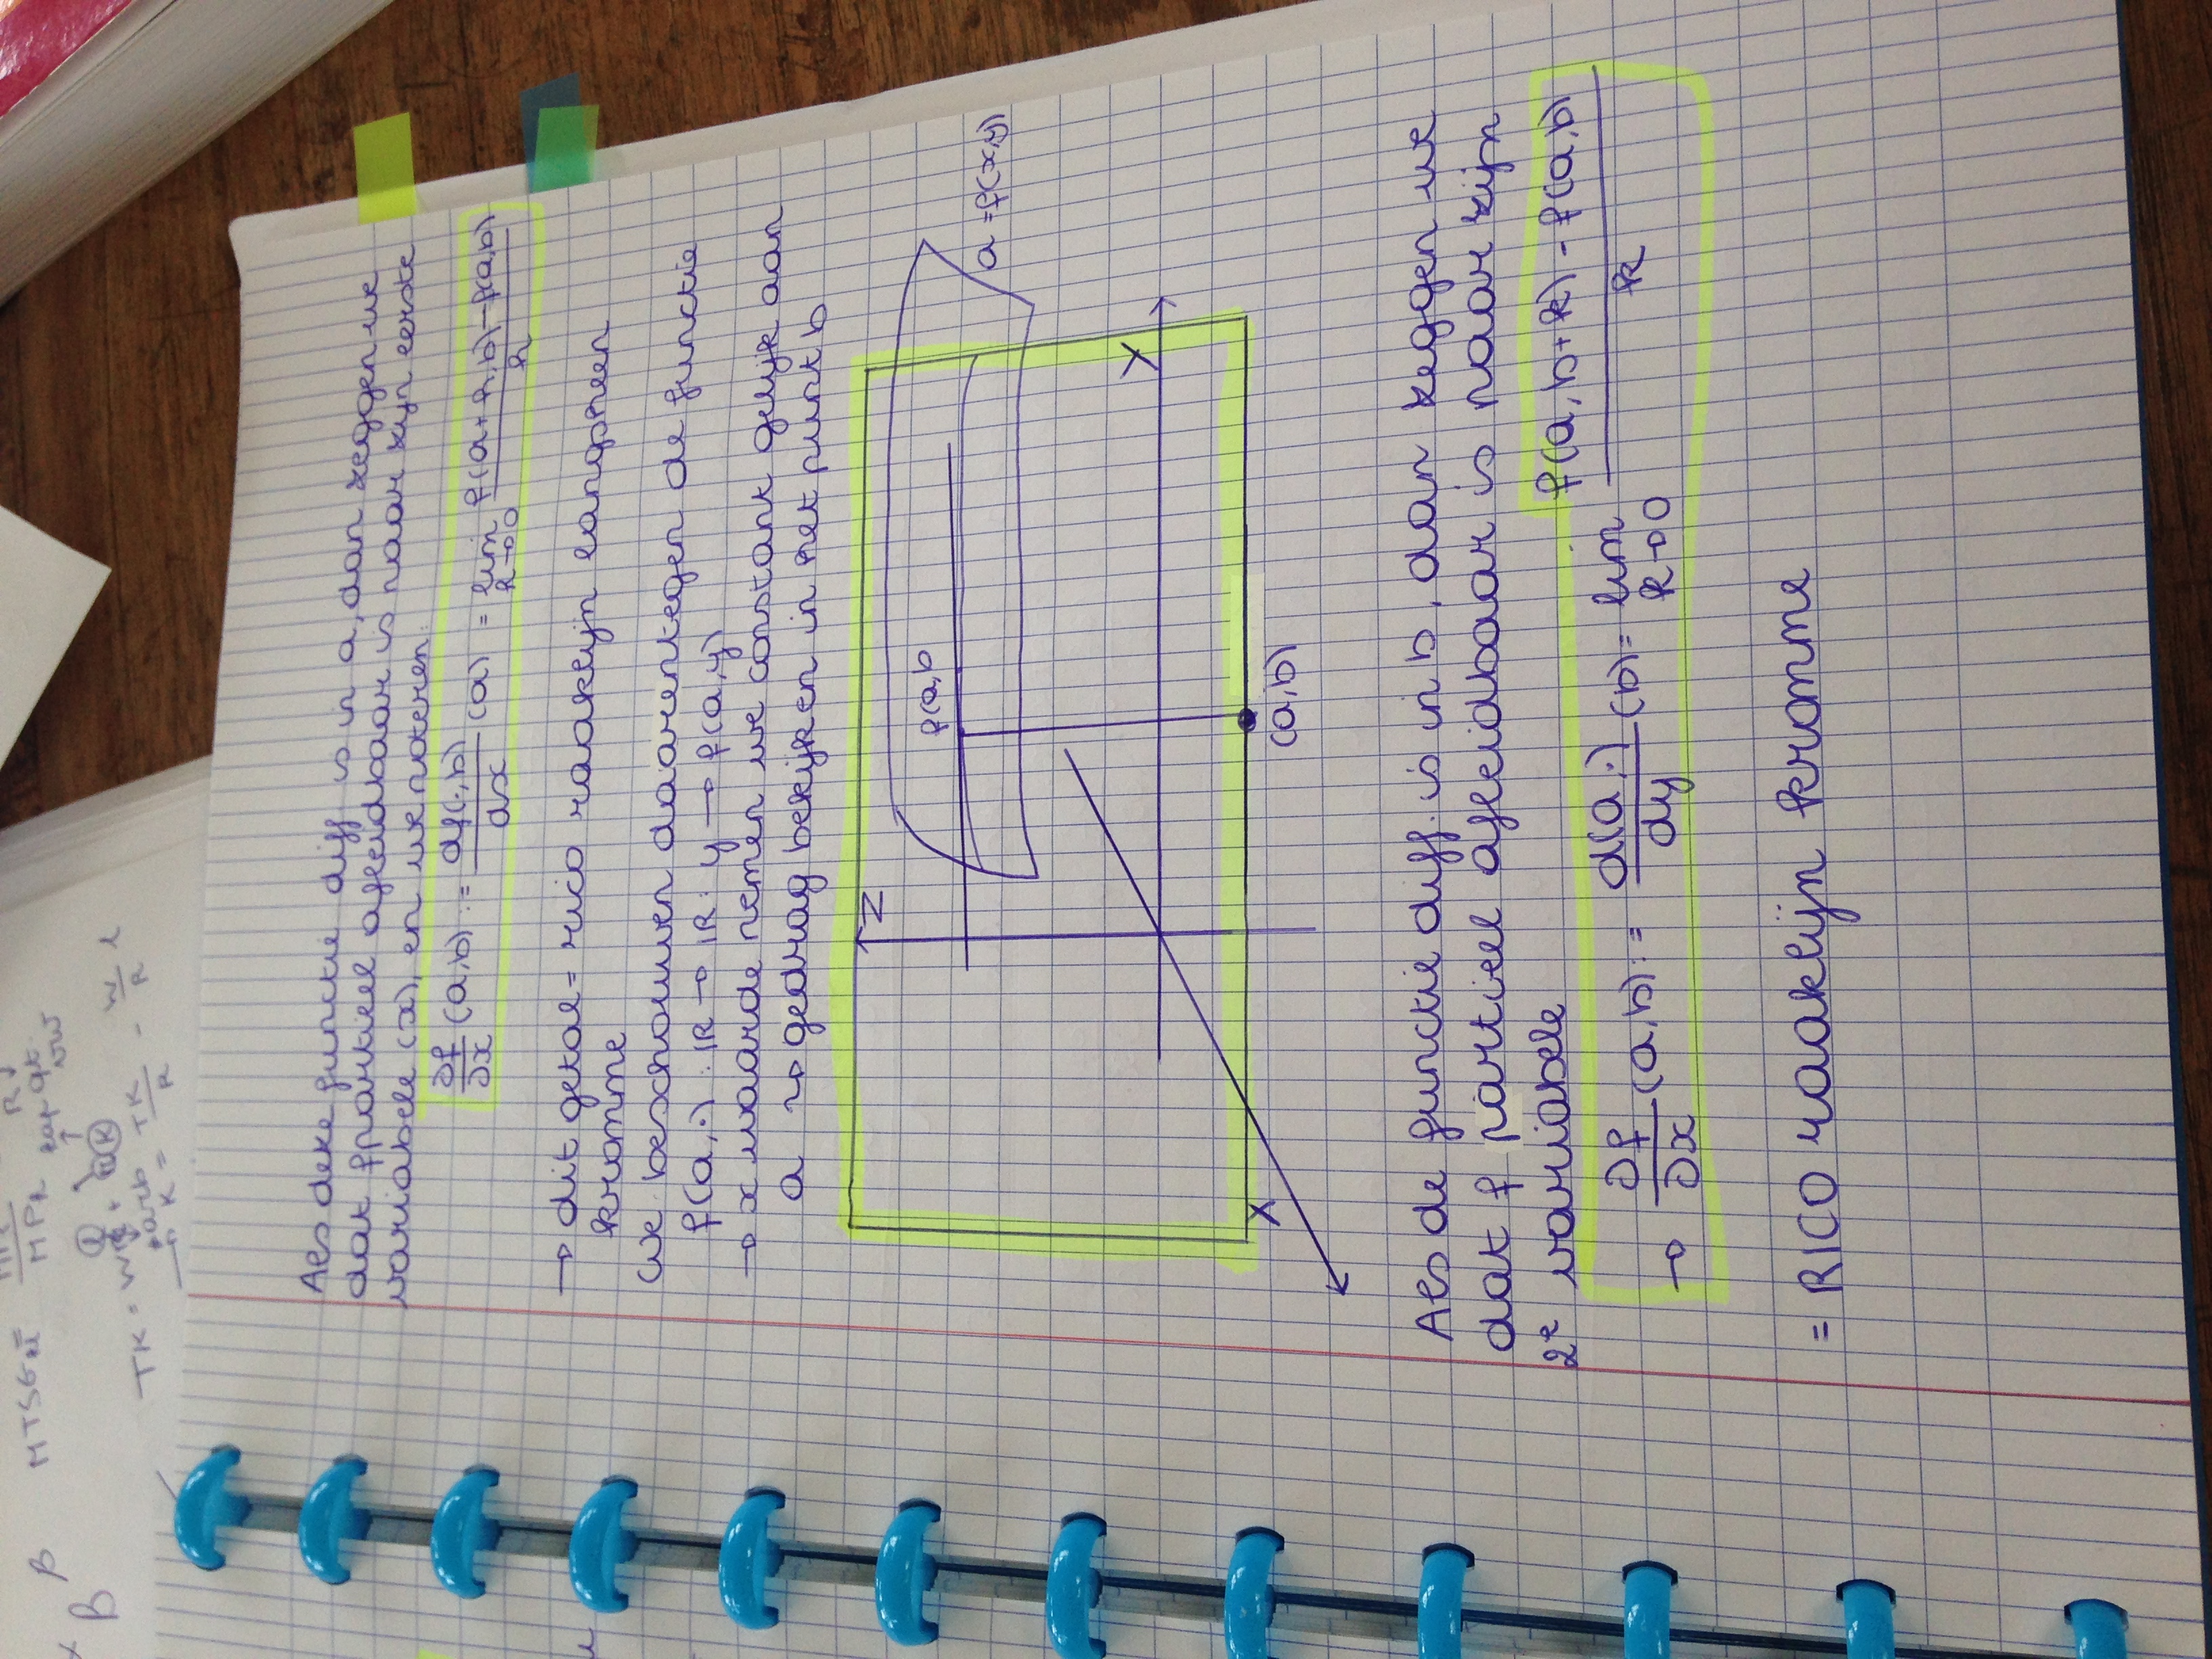 Als deze functie diff is in a, dan zeggen we
dat f partieel afleidbaar is naar zijn eerste
variabele (x), en we noteren:
∂f/∂x (a,b) := df(·,b)/dx (a) = lim h→0 f(a+h,b) - f(a,b) / h
→ dit getal = rico raaklijn langsheen
kromme
We beschouwen daarentegen de functie
f(a,·) : IR → IR : y → f(a,y)
→ x waarde nemen we constant gelijk aan
a → gedrag bekijken in het punt b
Z
f(a,b
a = f(x,y)
Y
X
(a,b)
Als de functie diff. is in b, dan zeggen we
dat f partieel afleidbaar is naar zijn
2e variabele
→ ∂f/∂x (a,b) := d(a,·)/dy (b) = lim k→0 f(a,b+k) - f(a,b) / k
= RICO raaklijn kromme
MTSG
MPk
TK =
TK/R - W/R L
K =
B
B